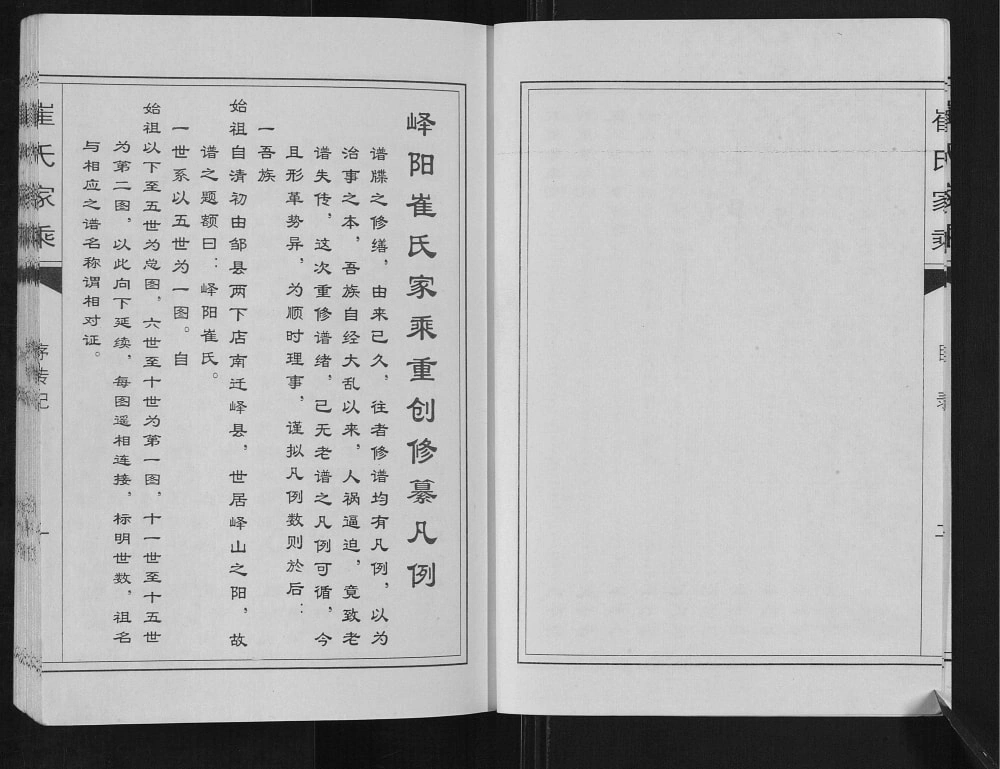 崔氏家乘
峄阳崔氏家乘重创修纂凡例
谱牒之修缮，由来已久，往者修谱均有凡例，以为
治事之本，吾族自经大乱以来，人祸逼迫，竟致老
谱失传，这次重修谱绪，已无老谱之凡例可循，今
且形革势异，为顺时理事，谨拟凡例数则於后：
一吾族
始祖自清初由邹县两下店南迁峄县，世居峄山之阳，故
谱之题额曰：峄阳崔氏。
一世系以五世为一图。自
始祖以下至五世为总图，六世至十世为第一图，十一世至十五世
为第二图，以此向下延续，每图遥相连接，标明世数，祖名
与相应之谱名称谓相对证。
崔氏家乘
序转记
一